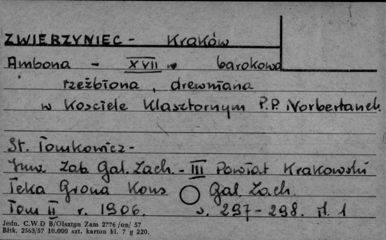 ZWIERZYNIEC - Kraków
Ambona - XVII w barokowa
rzeźbiona, drewniana
w Kosciele Klasztornym P.P. Norbertanek
St. Tomkowicz -
Inw. Zab Gal. Zach. - III Powiat Krakowski
Teka Grona Kons Gal Zach
Tom II r. 1906. s. 297-298. il. 1
Jedn. C.W.D B/Olsztyn Zam 2776 /on/ 57
Bltk. 2563/57 10.000 szt. karton kl. 7 g 220.